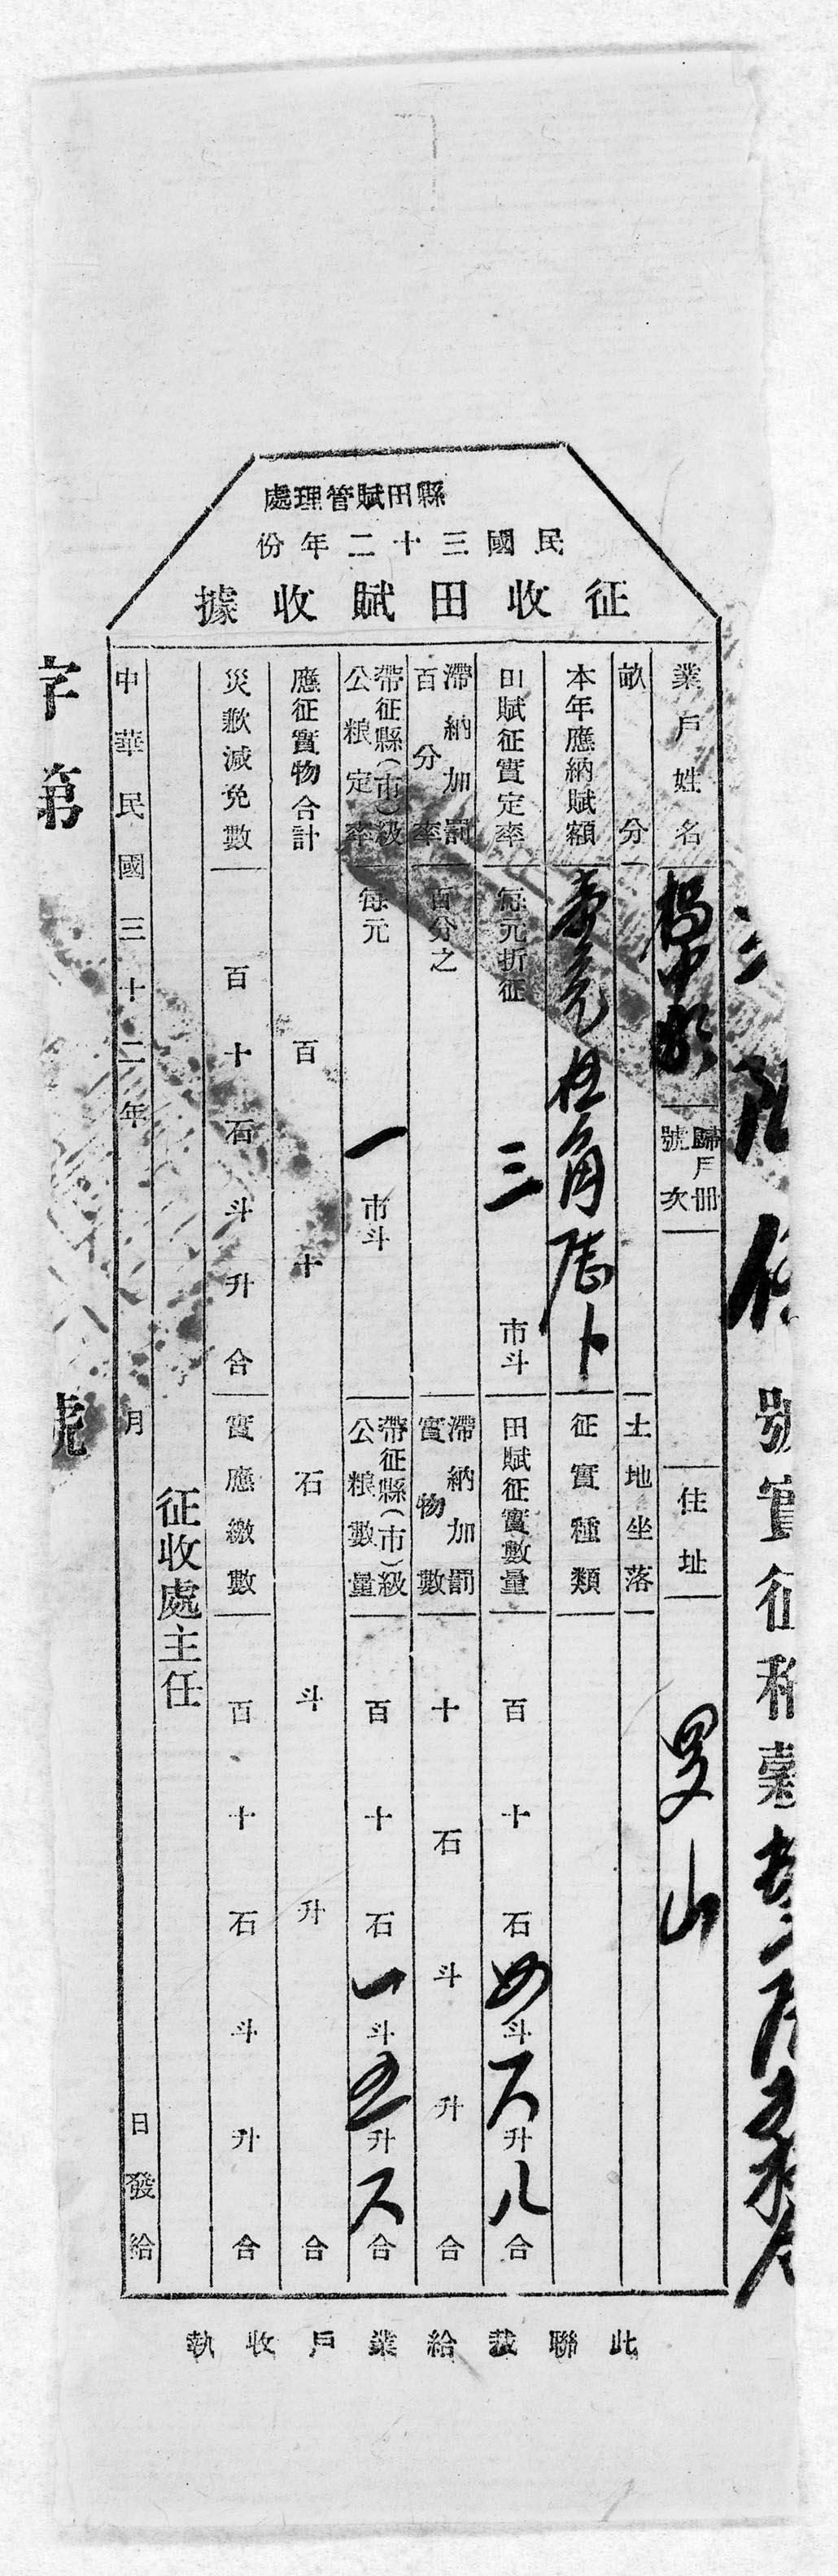 縣田賦管理處
民國三十二年份
征收田賦收據
業戶姓名 楊中 歸戶冊號次 住址 罗山
畝分 土地坐落
本年應納賦額 壹元伍角陸卜 征實種類
田賦征實定率 每元折征 三 市斗 田賦征實數量 百十石四斗六升八合
滯納加罰百分率 百分之 滯納加罰實物數 十石斗升合
帶征縣(市)級公粮定率 每元 一 市斗 帶征縣(市)級公粮數量 百十石一斗五升六合
應征實物合計 百十石斗升合
災歉減免數 百十石斗升合 實應繳數 百十石斗升合
征收處主任
中華民國三十二年 月 日發給
字第 號
此聯裁給業戶收執